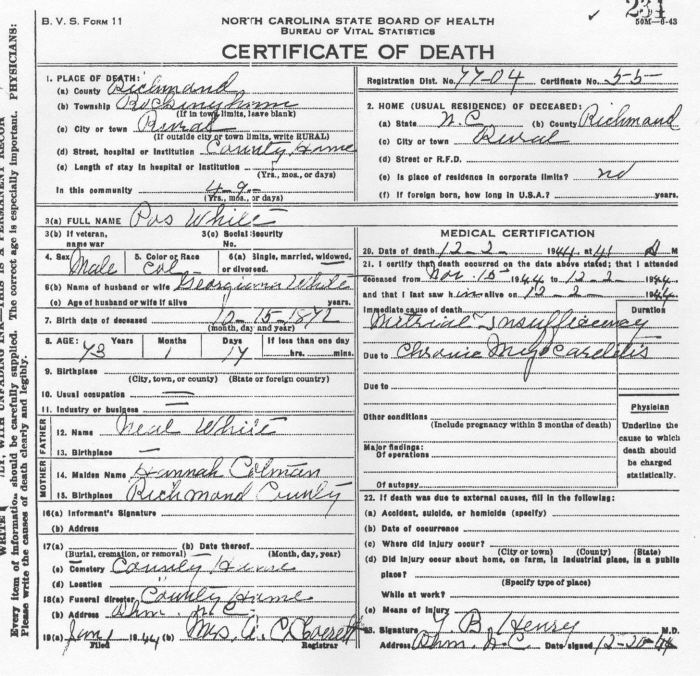 B. V. S. FORM 11
NORTH CAROLINA STATE BOARD OF HEALTH
BUREAU OF VITAL STATISTICS
✓ 231
50M—6-43
CERTIFICATE OF DEATH
1. PLACE OF DEATH:
(a) County Richmond
(b) Township Rockingham
(If in town limits, leave blank)
(c) City or town Rural
(If outside city or town limits, write RURAL)
(d) Street, hospital or Institution County Home
(e) Length of stay in hospital or Institution
(Yrs., mos., or days)
In this community 4-9-
(Yrs., mos., or days)
Registration Dist. No. 77-04 Certificate No. 55-
2. HOME (USUAL RESIDENCE) OF DECEASED:
(a) State N.C (b) County Richmond
(c) City or town Rural
(d) Street or R.F.D.
(e) Is place of residence in corporate limits? no
(f) If foreign born, how long in U.S.A.? years
3(a) FULL NAME Pos White
3(b) If veteran, name war
3(c) Social Security No.
4. Sex Male
5. Color or Race Col-
6(a) Single, married, widowed, or divorced.
6(b) Name of husband or wife Georgianna White
(c) Age of husband or wife if alive years.
7. Birth date of deceased 12-15-1872
(month, day and year)
8. AGE: Years 73 Months 1 Days 17 If less than one day hrs. mins.
9. Birthplace
(City, town, or county) (State or foreign country)
10. Usual occupation —
11. Industry or business —
FATHER
12. Name Neal White
13. Birthplace —
MOTHER
14. Maiden Name Hannah Colman
15. Birthplace Richmond County
16(a) Informant's Signature
(b) Address
17(a) (b) Date thereof
(Burial, cremation, or removal) (Month, day, year)
(c) Cemetery County Home
(d) Location
18(a) Funeral director County Home
(b) Address Rhm. N C.
19(a) Jan 1 1944 (b) Mrs. A. C. Everett
Filed Registrar
MEDICAL CERTIFICATION
20. Date of death 12-2- 1944 at A M
21. I certify that death occurred on the above stated; that I attended
deceased from Nov. 15 1944 to 12-2- 1944
and that I last saw him alive on 12-2- 1944
Immediate cause of death Duration
Mitrial insufficiency
Due to Chronic Myocarditis
Due to
Other conditions
(Include pregnancy within 3 months of death)
Major findings:
Of operations
Of autopsy
Physician
Underline the cause to which death should be charged statistically.
22. If death was due to external causes, fill in the following:
(a) Accident, suicide, or homicide (specify)
(b) Date of occurrence
(c) Where did injury occur?
(City or town) (County) (State)
(d) Did injury occur about home, on farm, in industrial place, in a public
place?
(Specify type of place)
While at work?
(e) Means of injury
23. Signature B. Henry M.D.
Address Rhm. N.C. Date signed 12-20-44
PHYSICIANS:
Every item of information should be carefully supplied. The correct age is especially important.
Please write the causes of death clearly and legibly.
WITH UNFADING INK—THIS IS A PERMANENT RECOR
WRITE